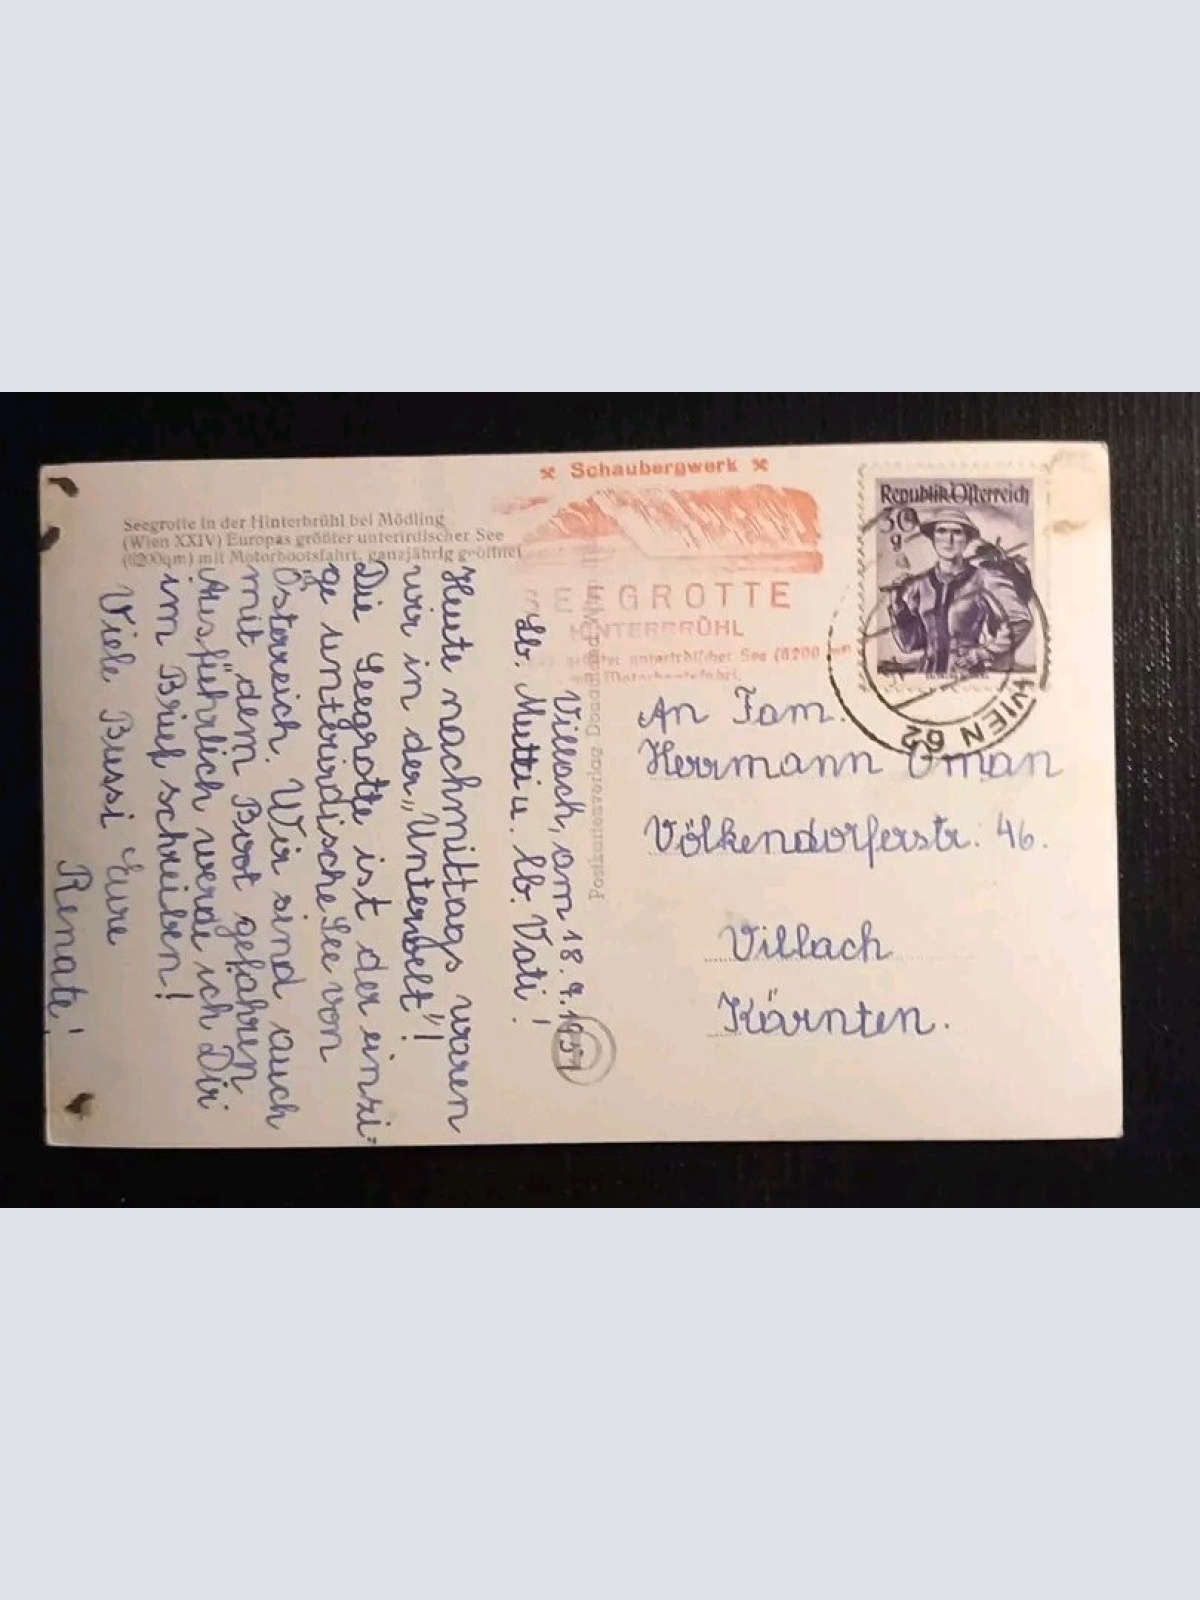 Schaubergwerk
Seegrotte in der Hinterbrühl bei Mödling
(Wien XXIV) Europas größter unterirdischer See
(6200qm) mit Motorbootsfahrt, ganzjährig geöffnet
SEEGROTTE
HINTERBRÜHL
größter unterirdischer See (6200 qm
mit Motorbootsfahrt.
Republik Österreich
30
g
WIEN 62
Postkartenverlag Donauland
Villach, am 18.9.1951
Lb. Mutti u. lb. Vati!
Heute nachmittags waren
wir in der „Unterwelt"!
Die Seegrotte ist der einzi-
ge unterirdische See von
Österreich. Wir sind auch
mit dem Boot gefahren
Ausführlich werde ich Dir
im Brief schreiben!
Viele Bussi Eure
Renate!
An Fam.
Herrmann Oman
Völkendorferstr. 46.
Villach
Kärnten.